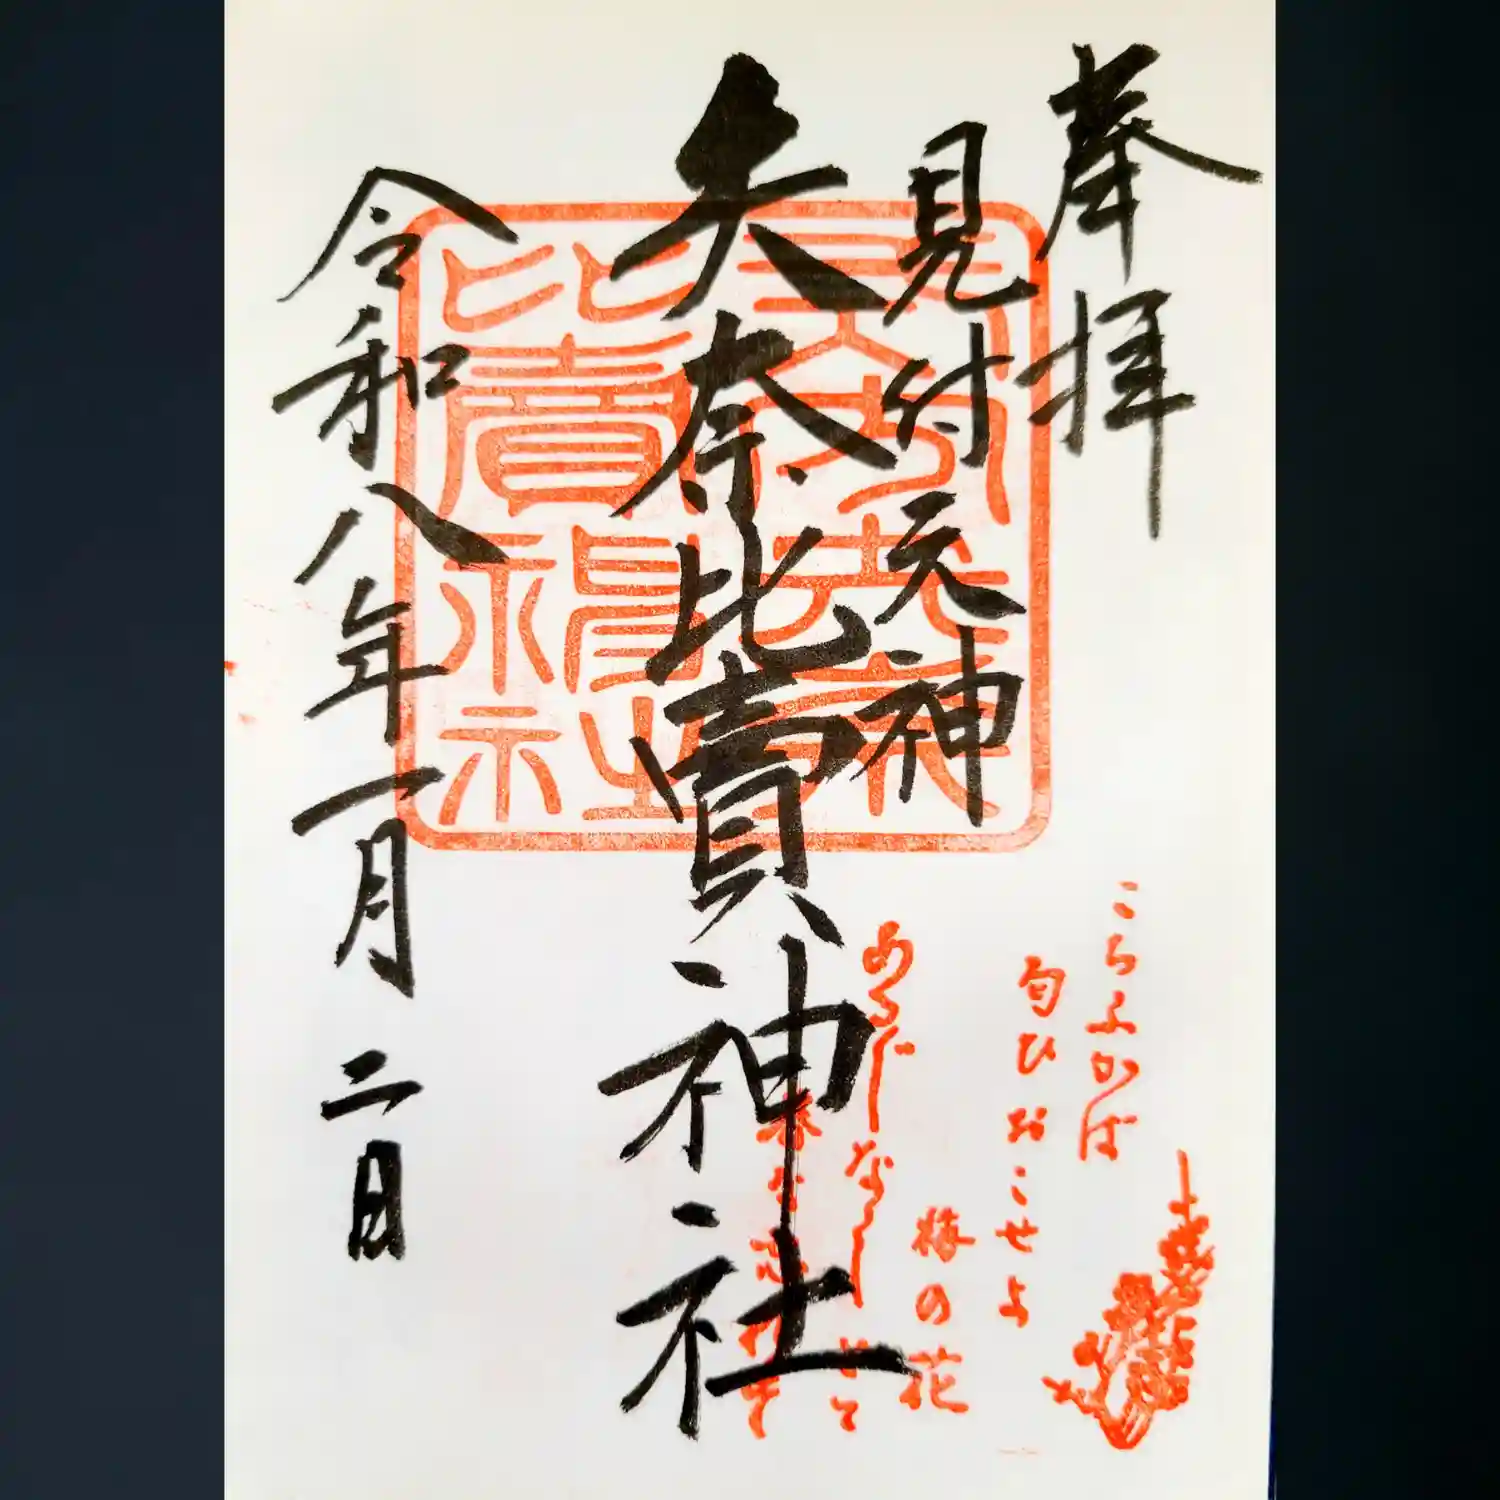 奉拝
見付天神
矢奈比賣神社
令和八年一月二日
こちふかば
匂ひおこせよ
梅の花
あるじなしとて
春な忘れそ